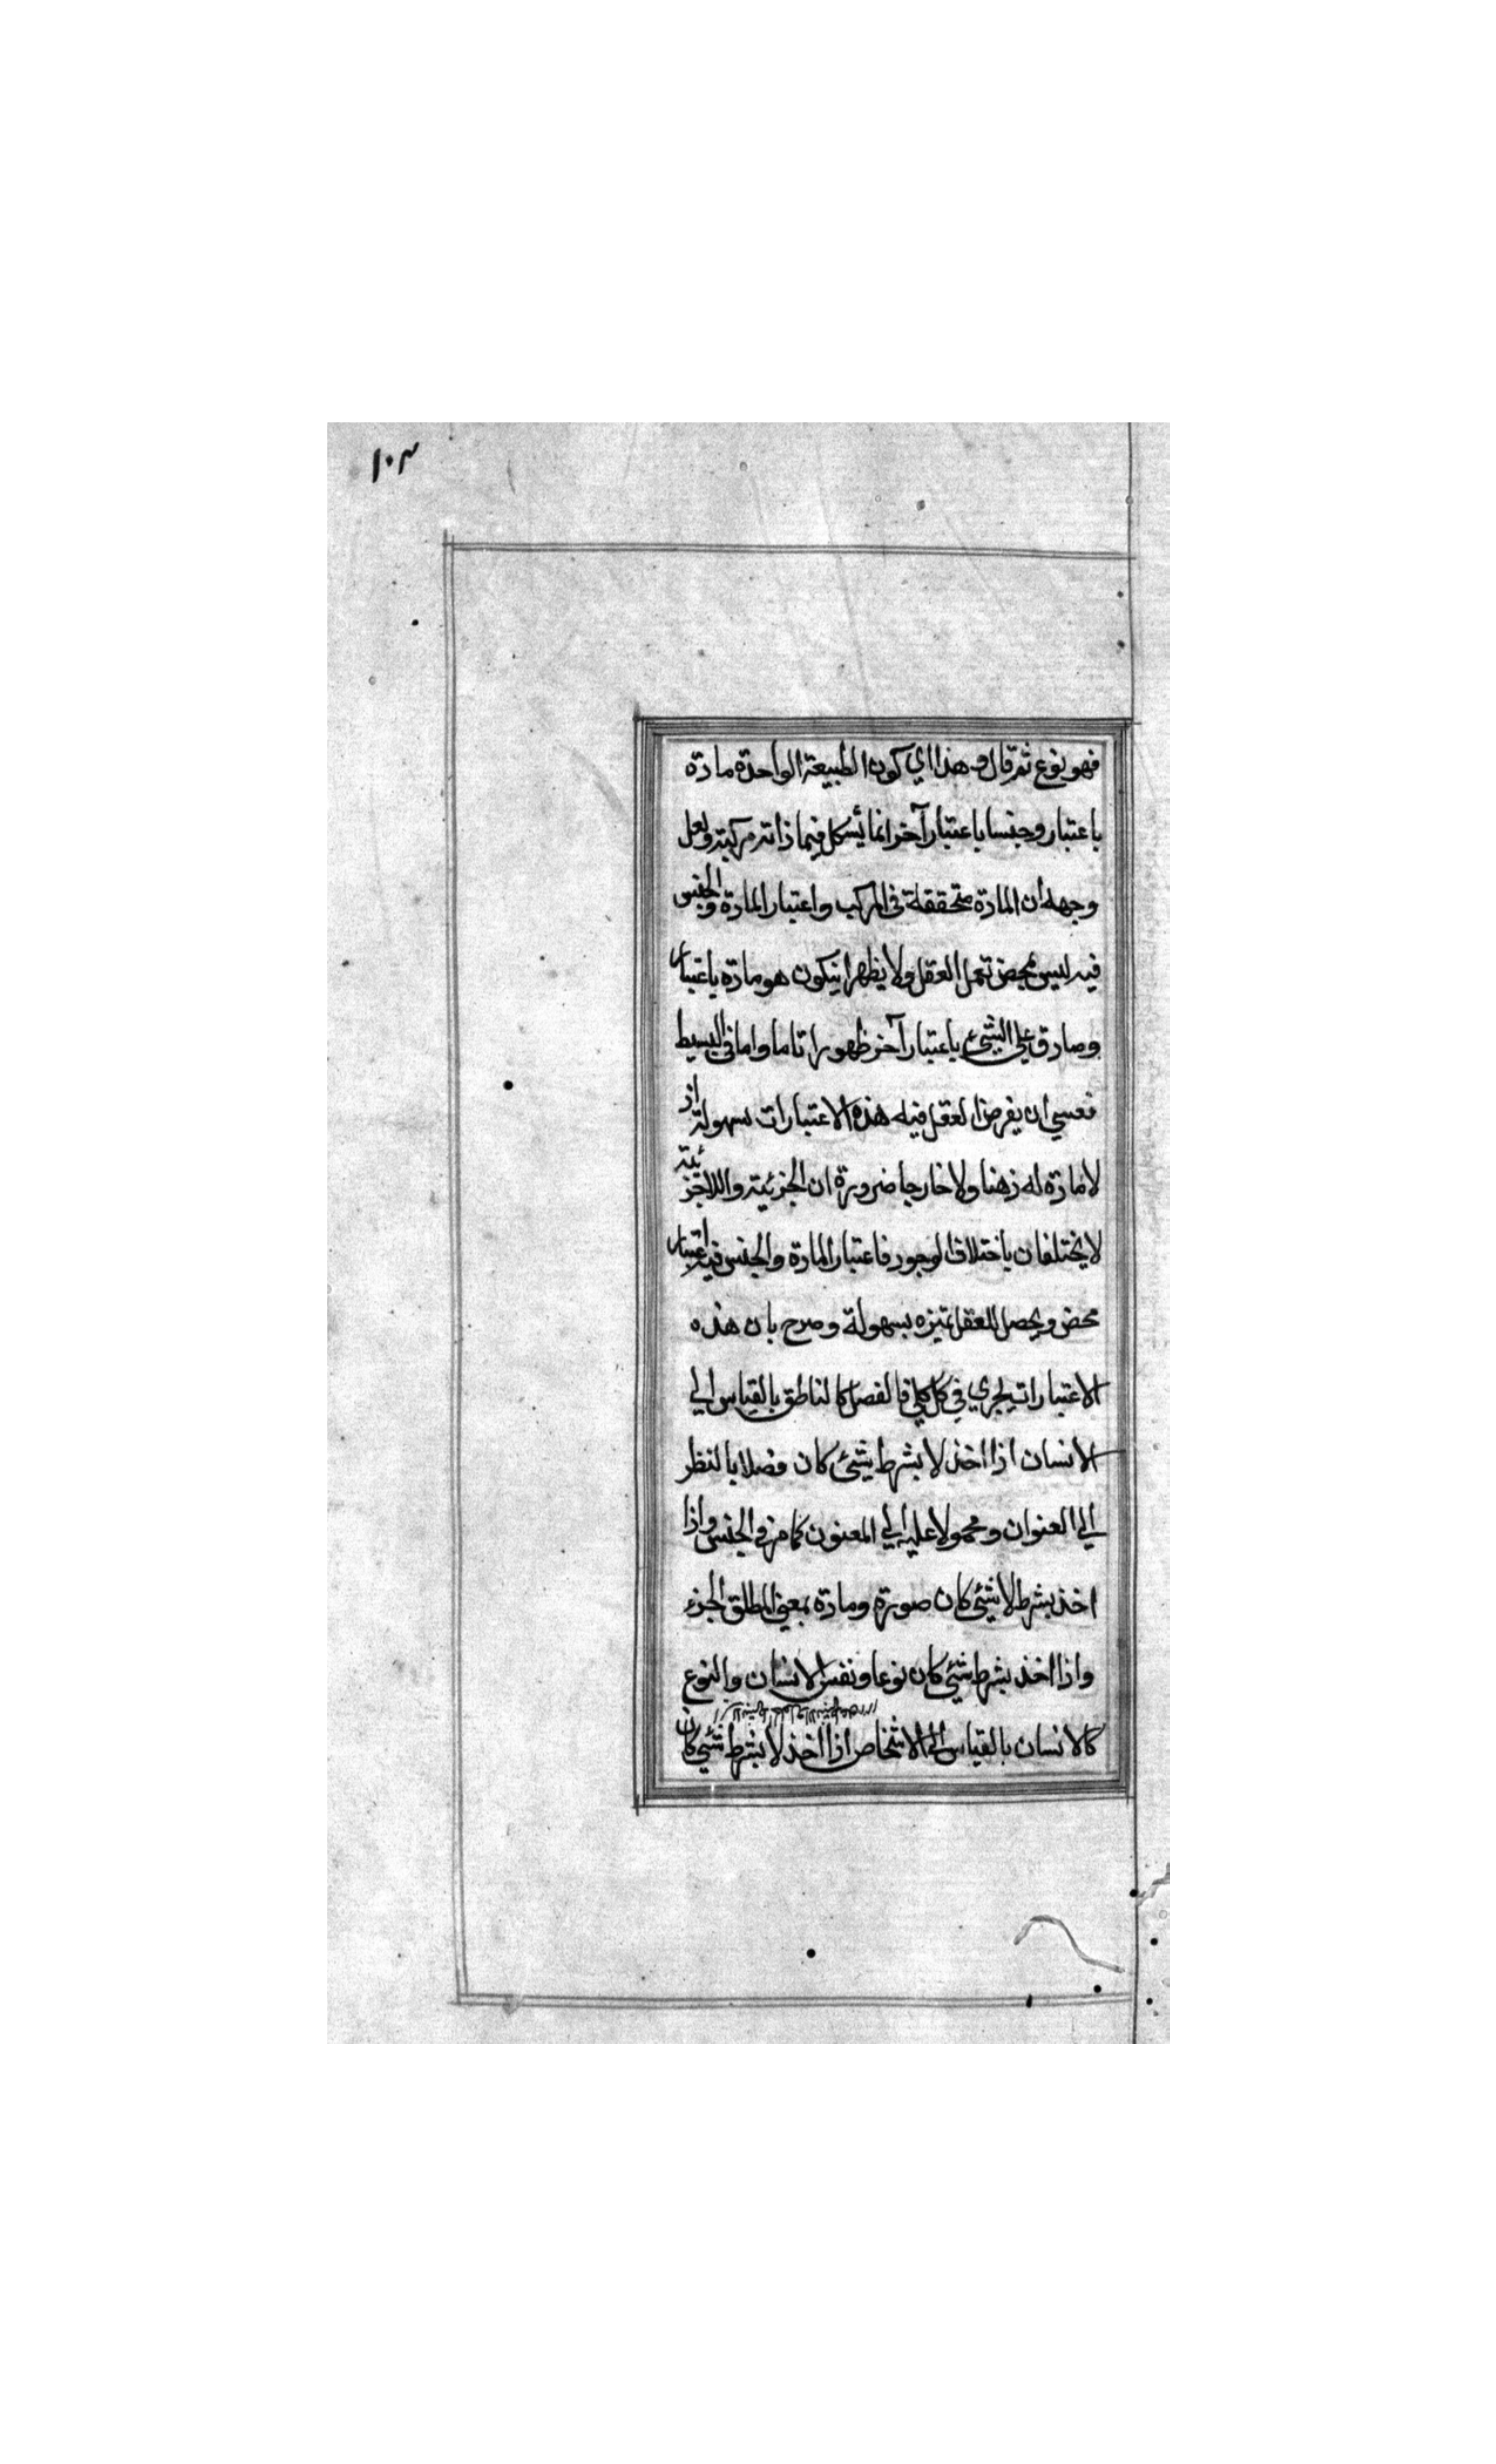 ١٠٣
فهو نوع ثم قال و هذا اي كون الطبيعة الواحدة مادة
باعتبار وجنسا باعتبار آخر انما يشكل فيما ذاته مركبة ولعل
وجهه ان المادة متحققة في المركب واعتبار المادة والجنس
فيه ليس محض تعمل العقل ولا يظهر ان يكون هو مادة باعتبار
وصادق علي الشئ باعتبار آخر ظهورا تاما واما في البسيط
فعسي ان يفرض العقل فيه هذه الاعتبارات بسهولة اذ
لا مادة له ذهنا ولا خارجا ضرورة ان الجزئية واللاجزئية
لا يختلفان باختلاف الوجود فاعتبار المادة والجنس فيه اعتبار
محض ويحصل للعقل تميزه بسهولة وصرح بان هذه
الاعتبارات يجري في كل كلي فالفصل كالناطق بالقياس الي
الانسان اذا اخذ لا بشرط شئ كان فصلا بالنظر
الي العنوان ومحمولا عليه الي المعنون كما مر في الجنس واذا
اخذ بشرط لا شئ كان صورة ومادة بمعني المطلق الجزء
واذا اخذ بشرط شئ كان نوعا ونفس الانسان والنوع
كالانسان بالقياس الي الاشخاص اذا اخذ لا بشرط شئ كان